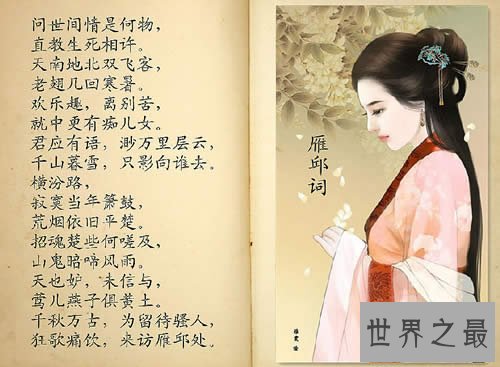 问世间情是何物，
直教生死相许。
天南地北双飞客，
老翅几回寒暑。
欢乐趣，离别苦，
就中更有痴儿女。
君应有语，渺万里层云，
千山暮雪，只影向谁去。
横汾路，
寂寞当年箫鼓，
荒烟依旧平楚。
招魂楚些何嗟及，
山鬼暗啼风雨。
天也妒，未信与，
莺儿燕子俱黄土。
千秋万古，为留待骚人，
狂歌痛饮，来访雁邱处。
雁邱词
世界之最